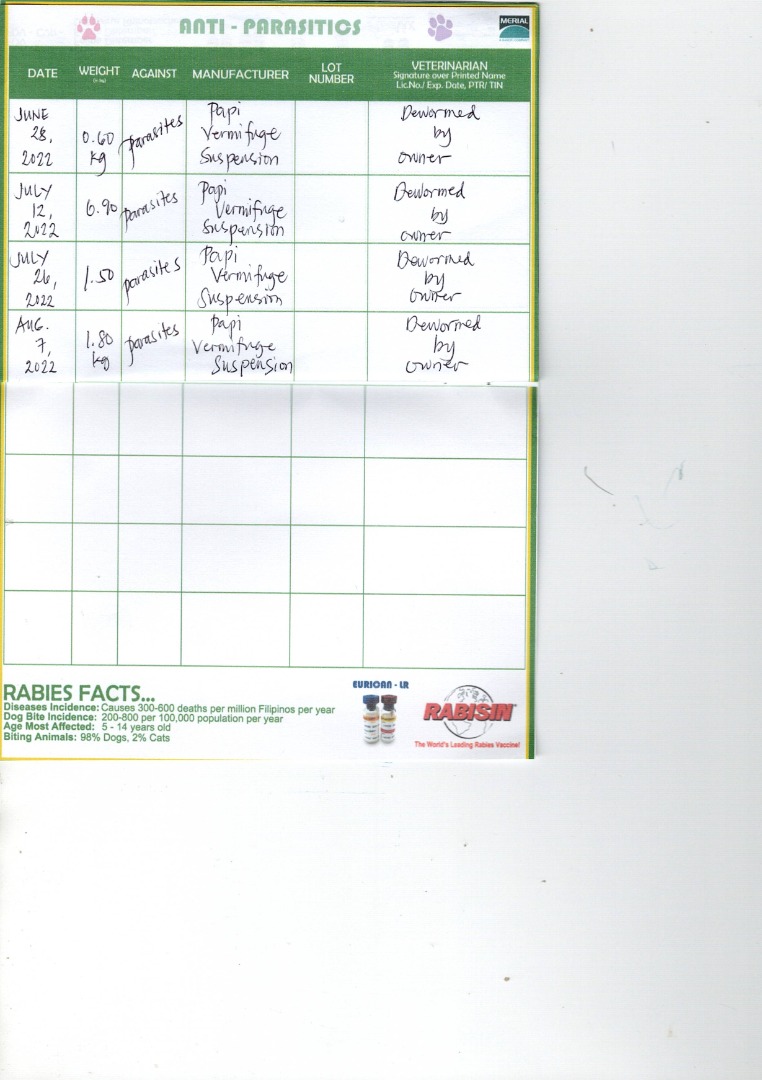 ANTI - PARASITICS
MERIAL
DATE
WEIGHT
AGAINST
MANUFACTURER
LOT
NUMBER
VETERINARIAN
Signature over Printed Name
Lic.No./ Exp. Date, PTR/ TIN
JUNE
28,
2022
0.60
kg
parasites
Papi
Vermifuge
Suspension
Dewormed
by
owner
JULY
12,
2022
0.90
parasites
Papi
Vermifuge
Suspension
Dewormed
by
owner
JULY
26,
2022
1.50
parasites
Papi
Vermifuge
Suspension
Dewormed
by
owner
AUG.
7,
2022
1.80
kg
parasites
Papi
Vermifuge
Suspension
Dewormed
by
owner
RABIES FACTS...
Diseases Incidence: Causes 300-600 deaths per million Filipinos per year
Dog Bite Incidence: 200-800 per 100,000 population per year
Age Most Affected: 5 - 14 years old
Biting Animals: 98% Dogs, 2% Cats
EURICAN - LR
RABISIN
The World's Leading Rabies Vaccine!